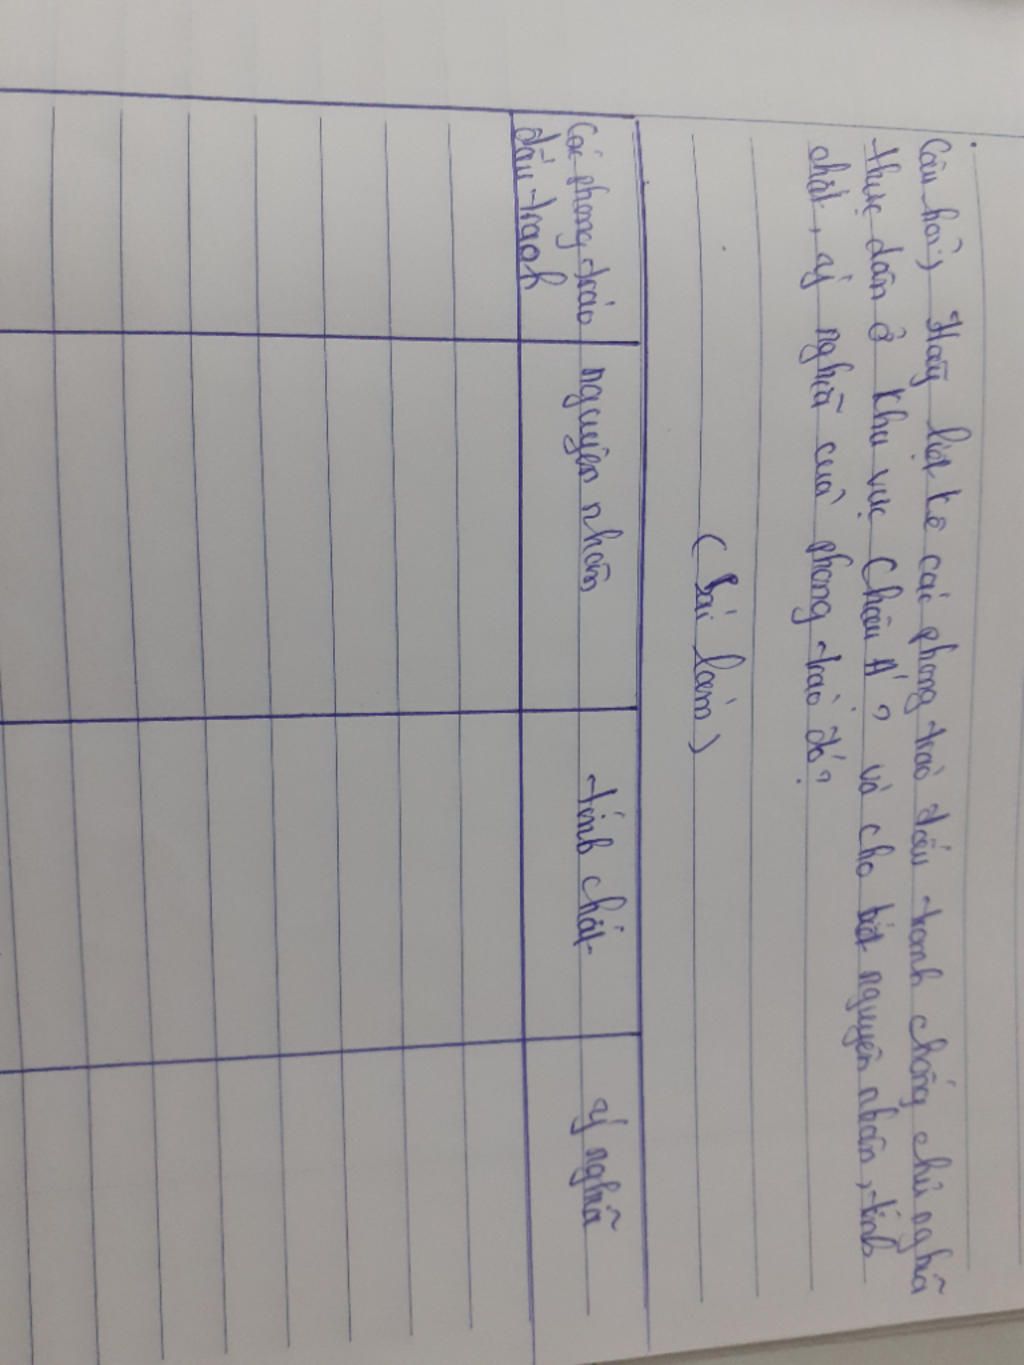 Câu hỏi, Hãy liệt kê các phong trào đấu tranh chống chủ nghĩa
thực dân ở khu vực Châu Á? và cho biết nguyên nhân, tính
chất, ý nghĩa của phong trào đó?
(Bài làm)
Các phong trào
đấu tranh
nguyên nhân
tính chất
ý nghĩa